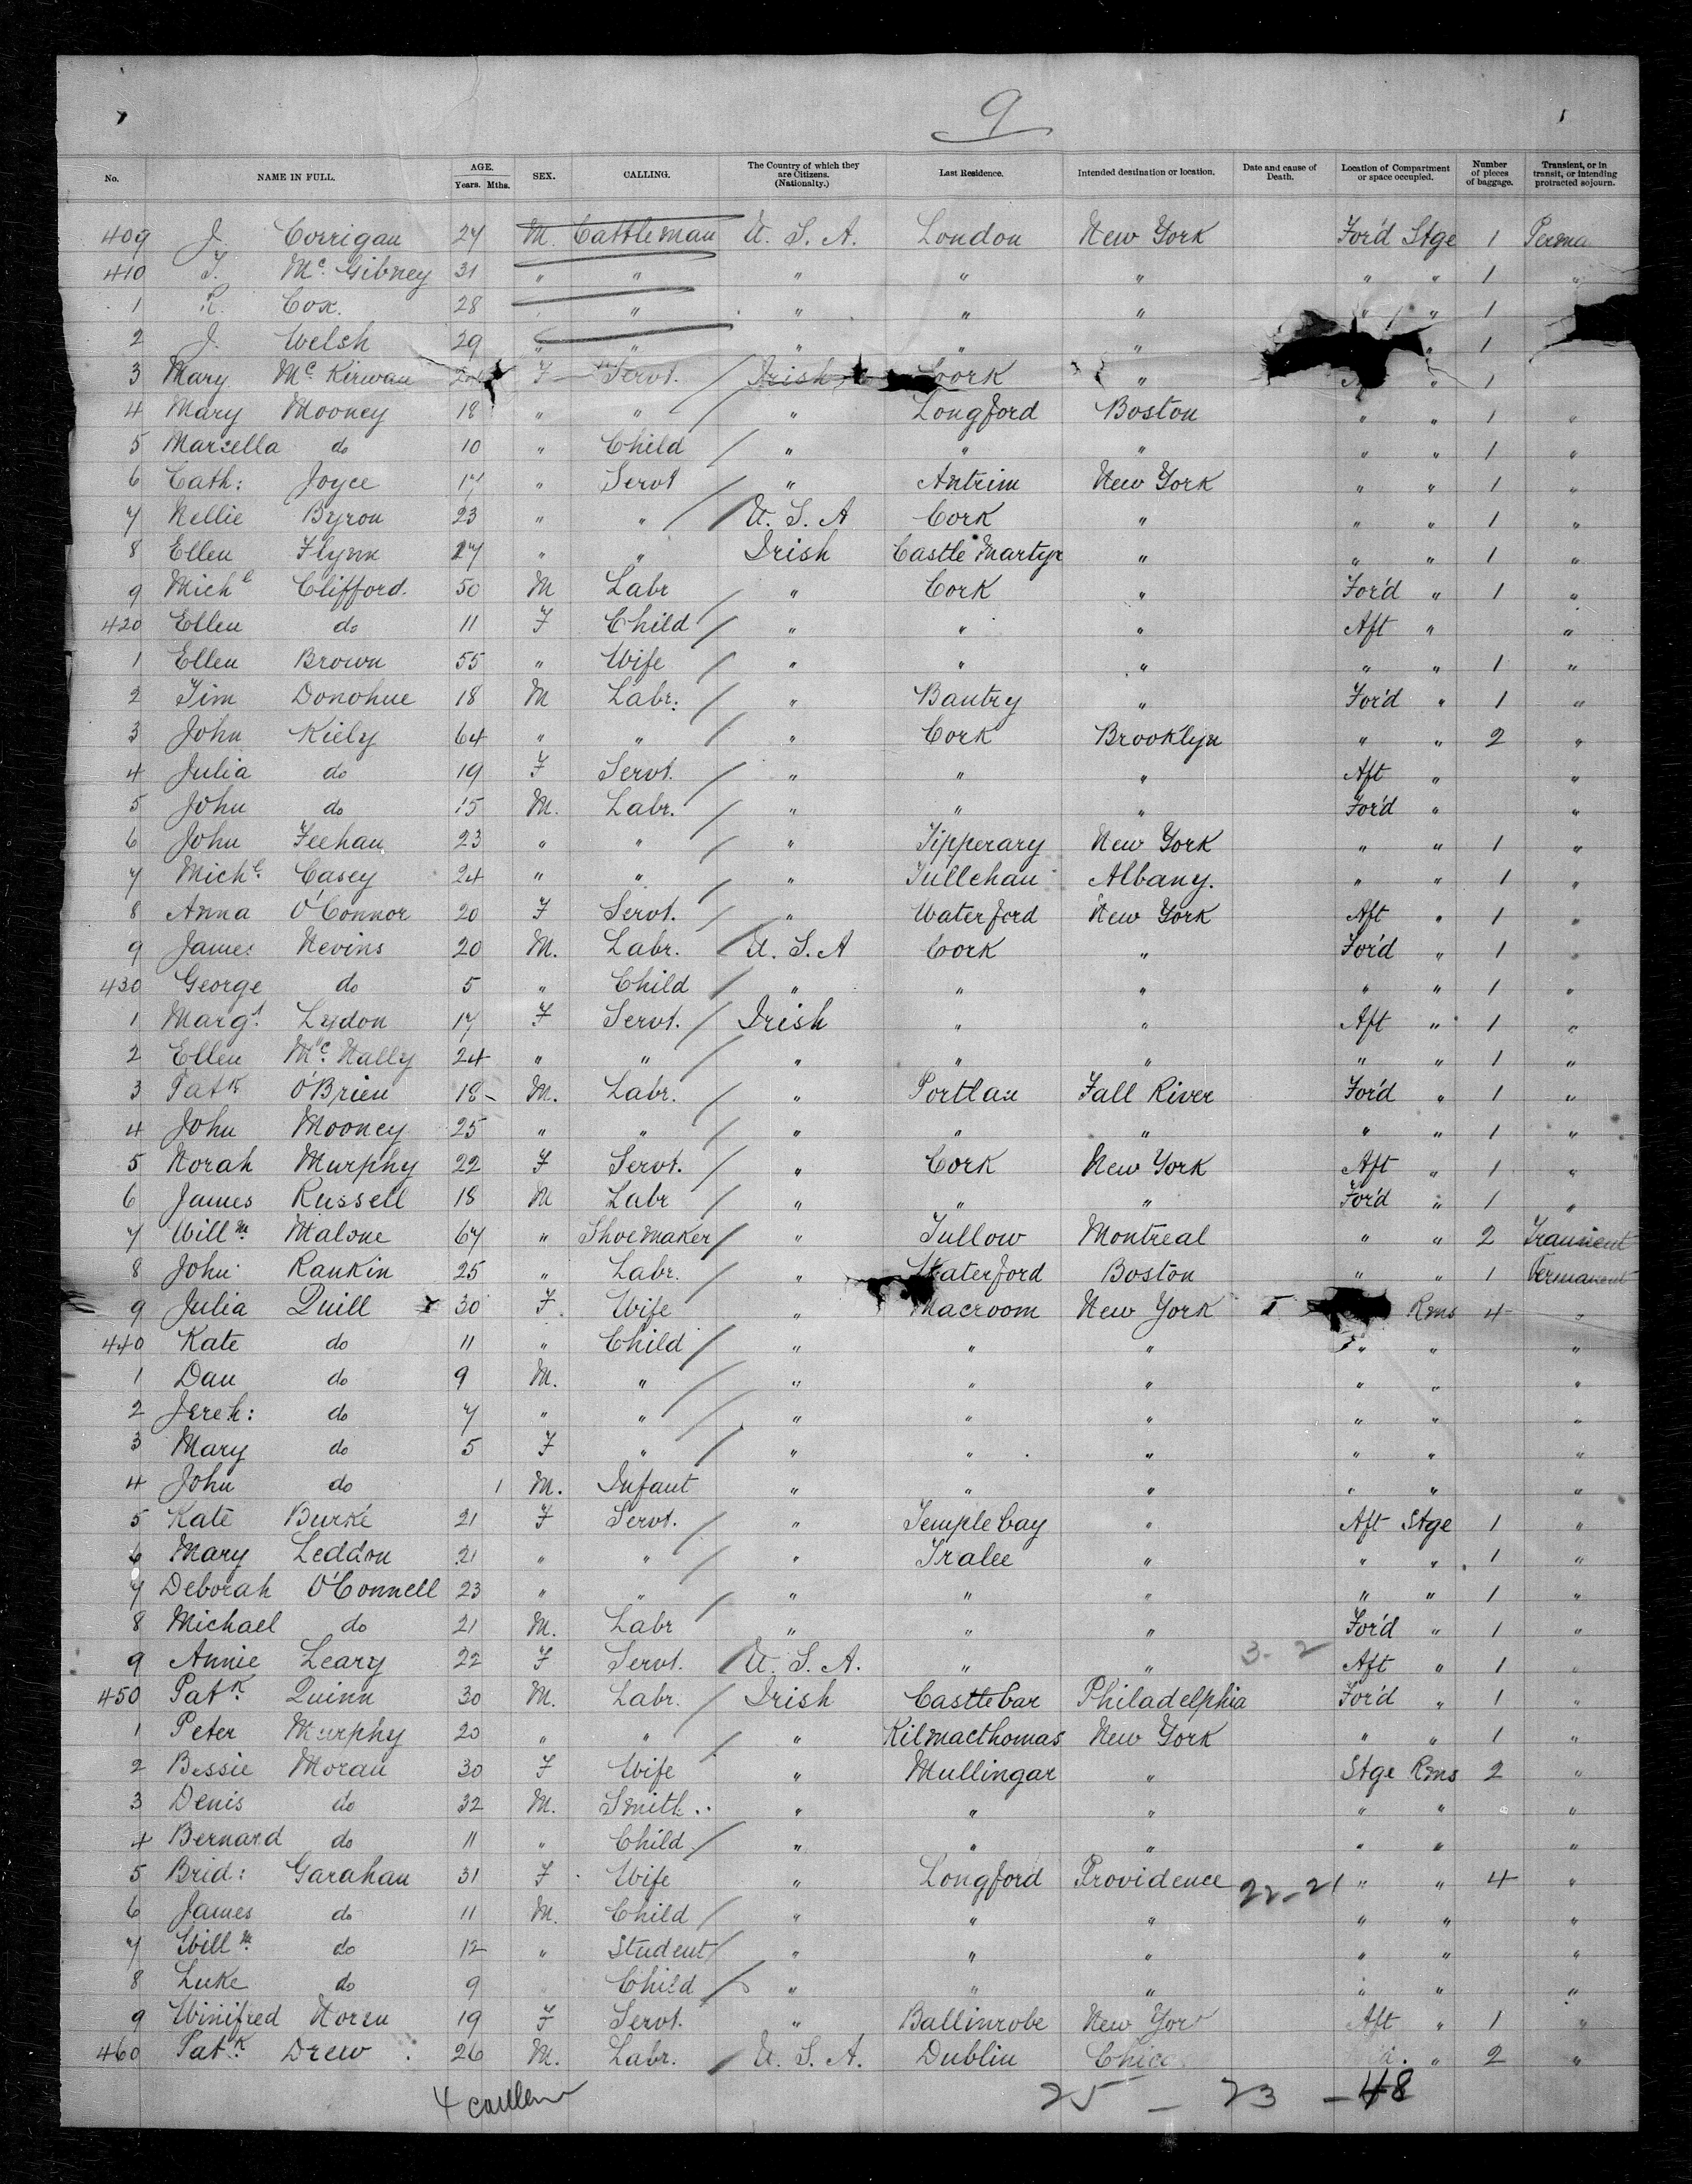 9
No. NAME IN FULL. AGE. Years. Mths. SEX. CALLING. The Country of which they are Citizens. (Nationalty.) Last Residence. Intended destination or location. Date and cause of Death. Location of Compartment or space occupied. Number of pieces of baggage. Transient, or in transit, or intending protracted sojourn.
409 J. Corrigan 27 M. Cattleman U. S. A. London New York For'd Stge 1 Perma
410 T. Mc. Gibney 31 " " " " " " " 1 "
1 R. Cox. 28 " " " " " " 1
2 J. Welsh 29 " " " " " " 1
3 Mary Mc. Kirwan F Servt. Irish Cork " " 1
4 Mary Mooney 18 " " " Longford Boston " " 1 "
5 Marcella do 10 " Child " " " " " 1 "
6 Cath: Joyce 17 " Servt " Antrim New York " " 1 "
7 Nellie Byron 23 " " U. S. A Cork " " " 1 "
8 Ellen Flynn 27 " " Irish Castle Martyr " " " 1 "
9 Michl Clifford. 50 M Labr " Cork " For'd " 1 "
420 Ellen do 11 F Child " " " Aft " "
1 Ellen Brown 55 " Wife " " " " " 1 "
2 Tim Donohue 18 M Labr. " Bantry " For'd " 1 "
3 John Kiely 64 " " " Cork Brooklyn " " 2 "
4 Julia do 19 F Servt. " " " Aft " "
5 John do 15 M. Labr. " " " For'd " "
6 John Feehan 23 " " " Tipperary New York " " 1 "
7 Michl. Casey 24 " " " Tullehan Albany. " " 1 "
8 Anna O'Connor 20 F Servt. " Waterford New York Aft " 1 "
9 James Nevins 20 M. Labr. U. S. A Cork " For'd " 1 "
430 George do 5 " Child " " " " " 1 "
1 Margt. Lydon 17 F Servt. Irish " " Aft " 1 "
2 Ellen Mc. Nally 24 " " " " " " " 1 "
3 Patk O'Brien 18 M. Labr. " Portlan Fall River For'd " 1 "
4 John Mooney 25 " " " " " " " 1 "
5 Norah Murphy 22 F Servt. " Cork New York Aft " 1 "
6 James Russell 18 M Labr " " " For'd " 1 "
7 Willm. Malone 67 " Shoemaker " Tullow Montreal " " 2 Transient
8 John Rankin 25 " Labr. " Waterford Boston " " 1 Permanent
9 Julia Quill 30 F. Wife " Macroom New York Rms 4 "
440 Kate do 11 " Child " " " " " "
1 Dan do 9 M. " " " " " " "
2 Jereh: do 7 " " " " " " " "
3 Mary do 5 F " " " " " " "
4 John do 1 M. Infant " " " " " "
5 Kate Burke 21 F Servt. " Templebay " Aft Stge 1 "
6 Mary Leddon 21 " " " Tralee " " " 1 "
7 Deborah O'Connell 23 " " " " " " " 1 "
8 Michael do 21 M. Labr " " " For'd " 1 "
9 Annie Leary 22 F Servt. U. S. A. " " 3-2 Aft " 1 "
450 Patk. Quinn 30 M. Labr. Irish Castlebar Philadelphia For'd " 1 "
1 Peter Murphy 20 " " " Kilmacthomas New York " " 1 "
2 Bessie Moran 30 F Wife " Mullingar " Stge Rms 2 "
3 Denis do 32 M. Smith " " " " " "
4 Bernard do 11 " Child " " " " " "
5 Brid: Garahan 31 F Wife " Longford Providence 22-21 " " 4 "
6 James do 11 M. Child " " " " " "
7 Willm. do 12 " Student " " " " " "
8 Luke do 9 " Child " " " " " "
9 Winifred Horan 19 F Servt. " Ballinrobe New Yor Aft " 1 "
460 Patk. Drew 26 M. Labr. U. S. A. Dublin Chic " 2 "
4 25 - 23 - 48